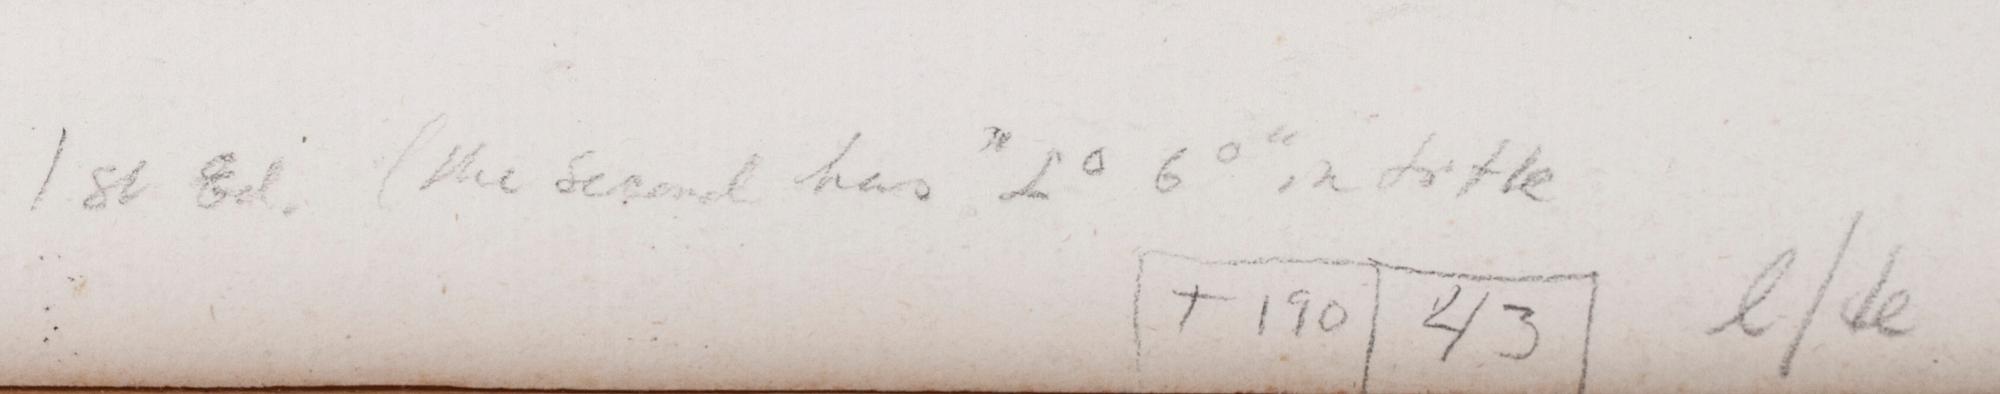 1st Ed. (the second has "L° 6°" in title
T 190 43
l/de